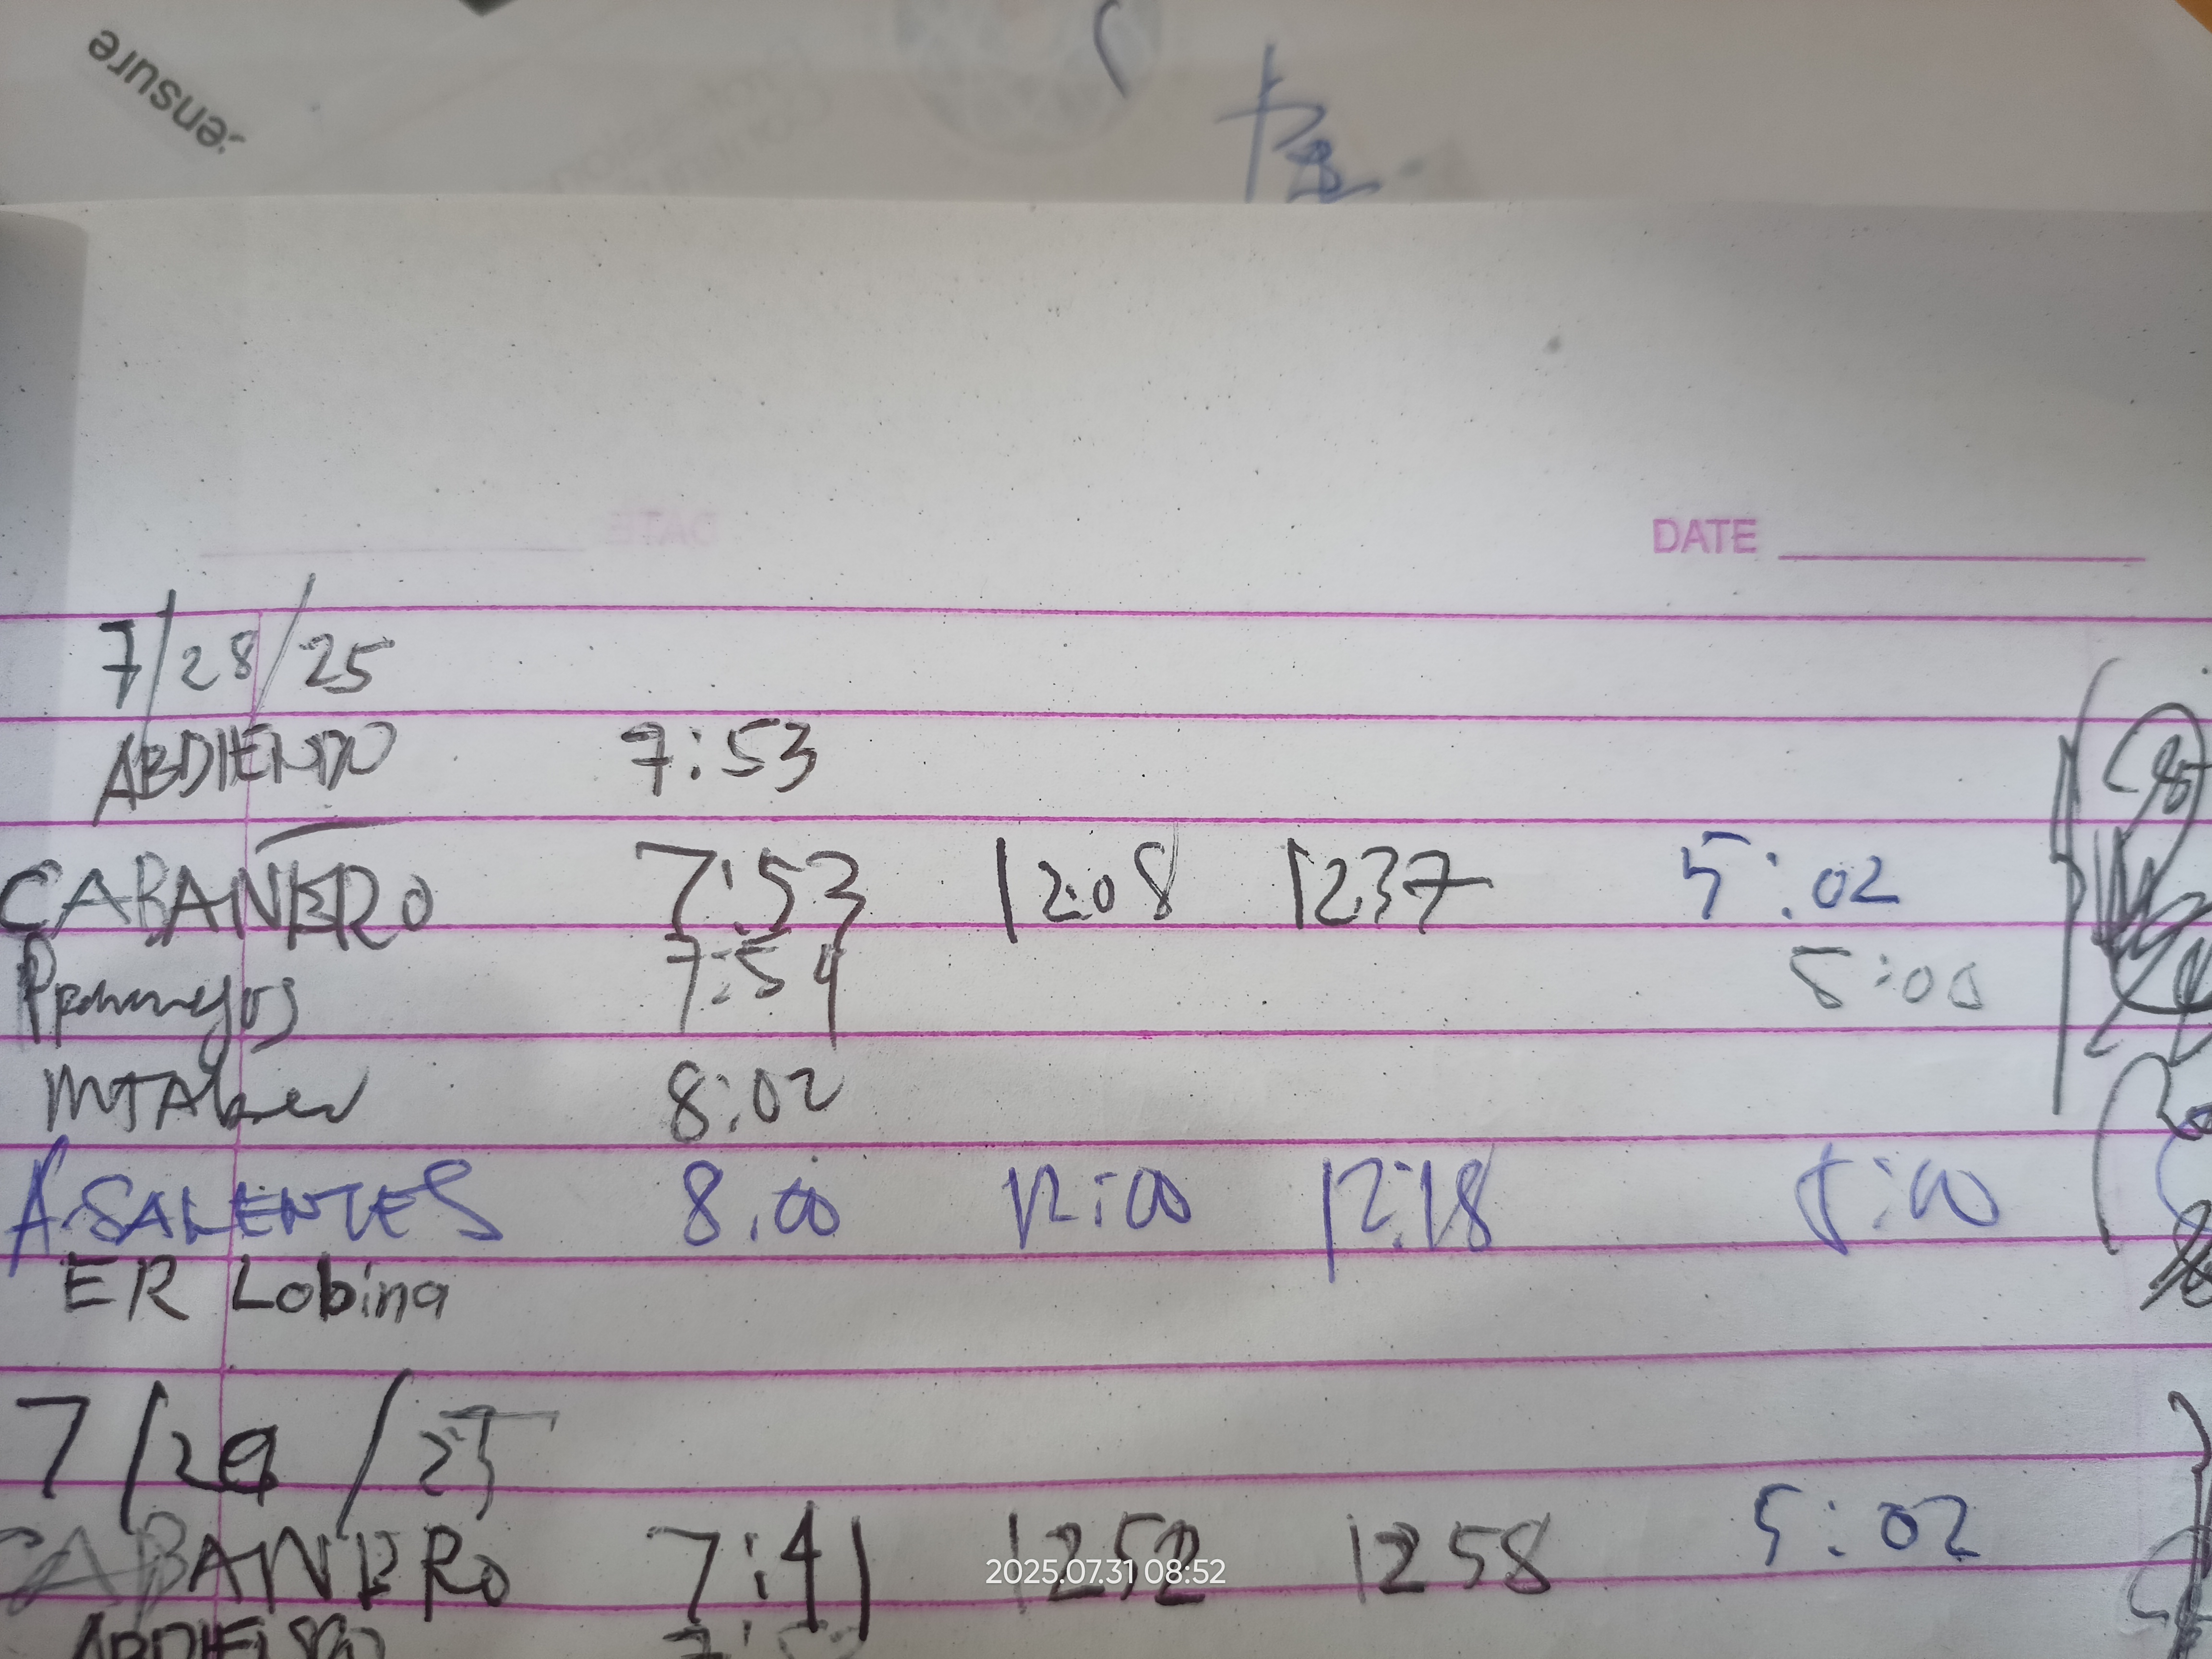 ensure
DATE
7/28/25
ABDIENDO 7:53
CABAÑERO 7:53 12:08 1237 5:02
7:54 5:00
8:02
A. SALENTES 8:00 12:00 12:18 5:00
ER Lobina
7/29/25
CABANERO 7:41 1252 1258 5:02
2025.07.31 08:52
ABDIENDO